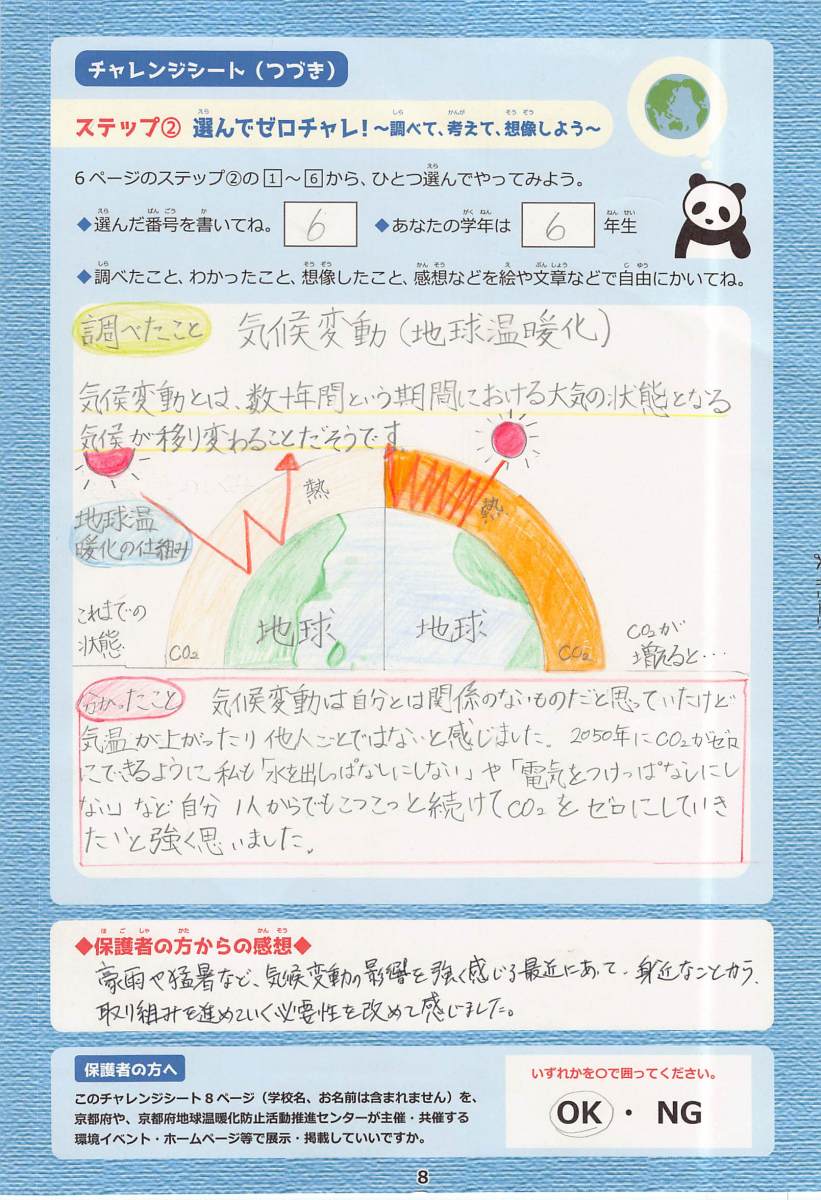 チャレンジシート（つづき）
ステップ② 選んでゼロチャレ！～調べて、考えて、想像しよう～
6ページのステップ②の1～6から、ひとつ選んでやってみよう。
◆選んだ番号を書いてね。 6 ◆あなたの学年は 6 年生
◆調べたこと、わかったこと、想像したこと、感想などを絵や文章などで自由にかいてね。
調べたこと 気候変動（地球温暖化）
気候変動とは、数十年間という期間における大気の状態となる
気候が移り変わることだそうです。
熱
熱
地球温
暖化の仕組み
これまでの
状態
地球
地球
CO2
CO2
CO2が
増えると…
分かったこと 気候変動は自分とは関係のないものだと思っていたけど
気温が上がったり他人ごとではないと感じました。2050年にCO2がゼロ
にできるように私も「水を出しっぱなしにしない」や「電気をつけっぱなしにし
ない」など自分1人からでもこつこつと続けてCO2をゼロにしていき
たいと強く思いました。
◆保護者の方からの感想◆
豪雨や猛暑など、気候変動の影響を強く感じる最近にあって、身近なことから、
取り組みを進めていく必要性を改めて感じました。
保護者の方へ
このチャレンジシート8ページ（学校名、お名前は含まれません）を、
京都府や、京都府地球温暖化防止活動推進センターが主催・共催する
環境イベント・ホームページ等で展示・掲載していいですか。
いずれかを〇で囲ってください。
OK ・ NG
8